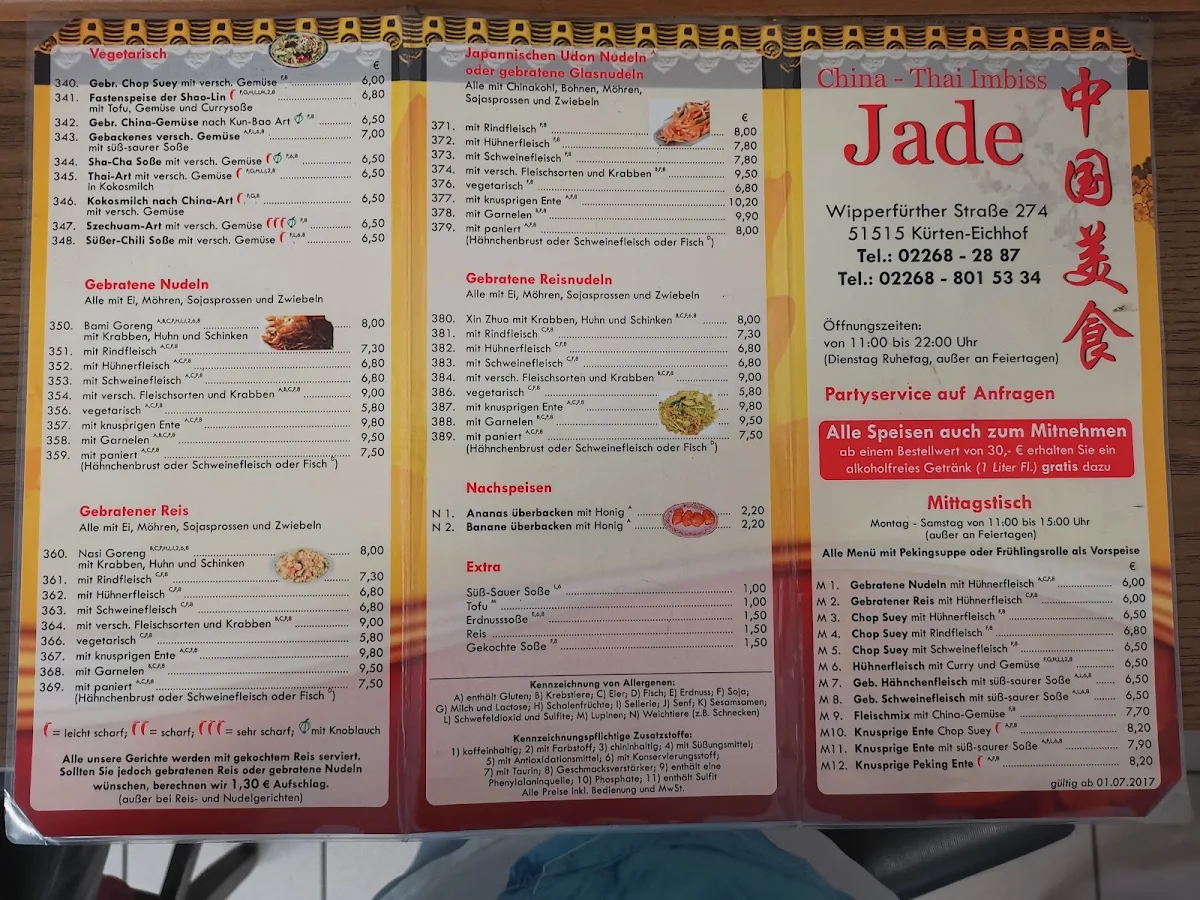 Vegetarisch
€
340. Gebr. Chop Suey mit versch. Gemüse F,8 6,00
341. Fastenspeise der Shao-Lin 6,80
mit Tofu, Gemüse und Currysoße
342. Gebr. China-Gemüse nach Kun-Bao Art F,8 6,50
343. Gebackenes versch. Gemüse 7,00
mit süß-saurer Soße
344. Sha-Cha Soße mit versch. Gemüse 6,50
345. Thai-Art mit versch. Gemüse 6,50
in Kokosmilch
346. Kokosmilch nach China-Art 6,50
mit versch. Gemüse
347. Szechuam-Art mit versch. Gemüse F,8 6,50
348. Süßer-Chili Soße mit versch. Gemüse 6,50
Gebratene Nudeln
Alle mit Ei, Möhren, Sojasprossen und Zwiebeln
350. Bami Goreng 8,00
mit Krabben, Huhn und Schinken
351. mit Rindfleisch A,C,F,8 7,30
352. mit Hühnerfleisch A,C,F,8 6,80
353. mit Schweinefleisch A,C,F,8 6,80
354. mit versch. Fleischsorten und Krabben A,B,C,F,8 9,00
356. vegetarisch A,C,F,8 5,80
357. mit knusprigen Ente A,C,F,8 9,80
358. mit Garnelen A,B,C,F,8 9,50
359. mit paniert A,C,F,8 7,50
(Hähnchenbrust oder Schweinefleisch oder Fisch D)
Gebratener Reis
Alle mit Ei, Möhren, Sojasprossen und Zwiebeln
360. Nasi Goreng 8,00
mit Krabben, Huhn und Schinken
361. mit Rindfleisch C,F,8 7,30
362. mit Hühnerfleisch C,F,8 6,80
363. mit Schweinefleisch C,F,8 6,80
364. mit versch. Fleischsorten und Krabben B,C,F,8 9,00
366. vegetarisch C,F,8 5,80
367. mit knusprigen Ente A,C,F,8 9,80
368. mit Garnelen B,C,F,8 9,50
369. mit paniert A,C,F,8 7,50
(Hähnchenbrust oder Schweinefleisch oder Fisch D)
= leicht scharf; = scharf; = sehr scharf; mit Knoblauch
Alle unsere Gerichte werden mit gekochtem Reis serviert.
Sollten Sie jedoch gebratenen Reis oder gebratene Nudeln
wünschen, berechnen wir 1,30 € Aufschlag.
(außer bei Reis- und Nudelgerichten)
Japannischen Udon Nudeln A
oder gebratene Glasnudeln
Alle mit Chinakohl, Bohnen, Möhren,
Sojasprossen und Zwiebeln
€
371. mit Rindfleisch F,8 8,00
372. mit Hühnerfleisch F,8 7,80
373. mit Schweinefleisch F,8 7,80
374. mit versch. Fleischsorten und Krabben B,F,8 9,50
376. vegetarisch F,8 6,80
377. mit knusprigen Ente A,F,8 10,20
378. mit Garnelen B,F,8 9,90
379. mit paniert A,F,8 8,00
(Hähnchenbrust oder Schweinefleisch oder Fisch D)
Gebratene Reisnudeln
Alle mit Ei, Möhren, Sojasprossen und Zwiebeln
380. Xin Zhuo mit Krabben, Huhn und Schinken B,C,F,6,8 8,00
381. mit Rindfleisch C,F,8 7,30
382. mit Hühnerfleisch C,F,8 6,80
383. mit Schweinefleisch C,F,8 6,80
384. mit versch. Fleischsorten und Krabben B,C,F,8 9,00
386. vegetarisch C,F,8 5,80
387. mit knusprigen Ente A,C,F,8 9,80
388. mit Garnelen B,C,F,8 9,50
389. mit paniert A,C,F,8 7,50
(Hähnchenbrust oder Schweinefleisch oder Fisch D)
Nachspeisen
N 1. Ananas überbacken mit Honig A 2,20
N 2. Banane überbacken mit Honig A 2,20
Extra
Süß-Sauer Soße 1,00
Tofu 1,00
Erdnusssoße 1,50
Reis 1,50
Gekochte Soße F,8 1,50
Kennzeichnung von Allergenen:
A) enthält Gluten; B) Krebstiere; C) Eier; D) Fisch; E) Erdnuss; F) Soja;
G) Milch und Lactose; H) Schalenfrüchte; I) Sellerie; J) Senf; K) Sesamsamen;
L) Schwefeldioxid und Sulfite; M) Lupinen; N) Weichtiere (z.B. Schnecken)
Kennzeichnungspflichtige Zusatzstoffe:
1) koffeinhaltig; 2) mit Farbstoff; 3) chininhaltig; 4) mit Süßungsmittel;
5) mit Antioxidationsmittel; 6) mit Konservierungsstoff;
7) mit Taurin; 8) Geschmacksverstärker; 9) enthält eine
Phenylalaninquelle; 10) Phosphate; 11) enthält Sulfit
Alle Preise inkl. Bedienung und MwSt.
China - Thai Imbiss
Jade
中国美食
Wipperfürther Straße 274
51515 Kürten-Eichhof
Tel.: 02268 - 28 87
Tel.: 02268 - 801 53 34
Öffnungszeiten:
von 11:00 bis 22:00 Uhr
(Dienstag Ruhetag, außer an Feiertagen)
Partyservice auf Anfragen
Alle Speisen auch zum Mitnehmen
ab einem Bestellwert von 30,- € erhalten Sie ein
alkoholfreies Getränk (1 Liter Fl.) gratis dazu
Mittagstisch
Montag - Samstag von 11:00 bis 15:00 Uhr
(außer an Feiertagen)
Alle Menü mit Pekingsuppe oder Frühlingsrolle als Vorspeise
€
M 1. Gebratene Nudeln mit Hühnerfleisch A,C,F,8 6,00
M 2. Gebratener Reis mit Hühnerfleisch C,F,8 6,00
M 3. Chop Suey mit Hühnerfleisch F,8 6,50
M 4. Chop Suey mit Rindfleisch F,8 6,80
M 5. Chop Suey mit Schweinefleisch F,8 6,50
M 6. Hühnerfleisch mit Curry und Gemüse 6,50
M 7. Geb. Hähnchenfleisch mit süß-saurer Soße 6,50
M 8. Geb. Schweinefleisch mit süß-saurer Soße 6,50
M 9. Fleischmix mit China-Gemüse F,8 7,70
M10. Knusprige Ente Chop Suey A,F,8 8,20
M11. Knusprige Ente mit süß-saurer Soße 7,90
M12. Knusprige Peking Ente A,F,8 8,20
gültig ab 01.07.2017